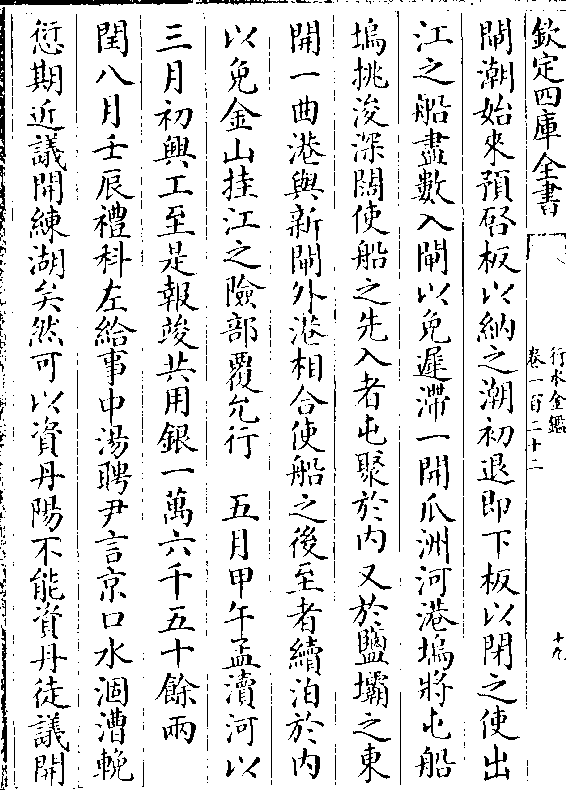 欽定四庫全書
行水金鑑
卷一百二十二
十九
閘潮始來預啓板以納之潮初退即下板以閉之使出
江之船盡數入閘以免遲滯一開瓜洲河港塢將屯船
塢挑浚深闊使船之先入者屯聚於内又於鹽壩之東
開一曲港與新閘外港相合使船之後至者續泊於内
以免金山挂江之險部覆允行　五月甲午孟瀆河以
三月初興工至是報竣共用銀一萬六千五十餘兩
閏八月壬辰禮科左給事中湯聘尹言京口水涸漕輓
愆期近議開練湖矣然可以資丹陽不能資丹徒議開